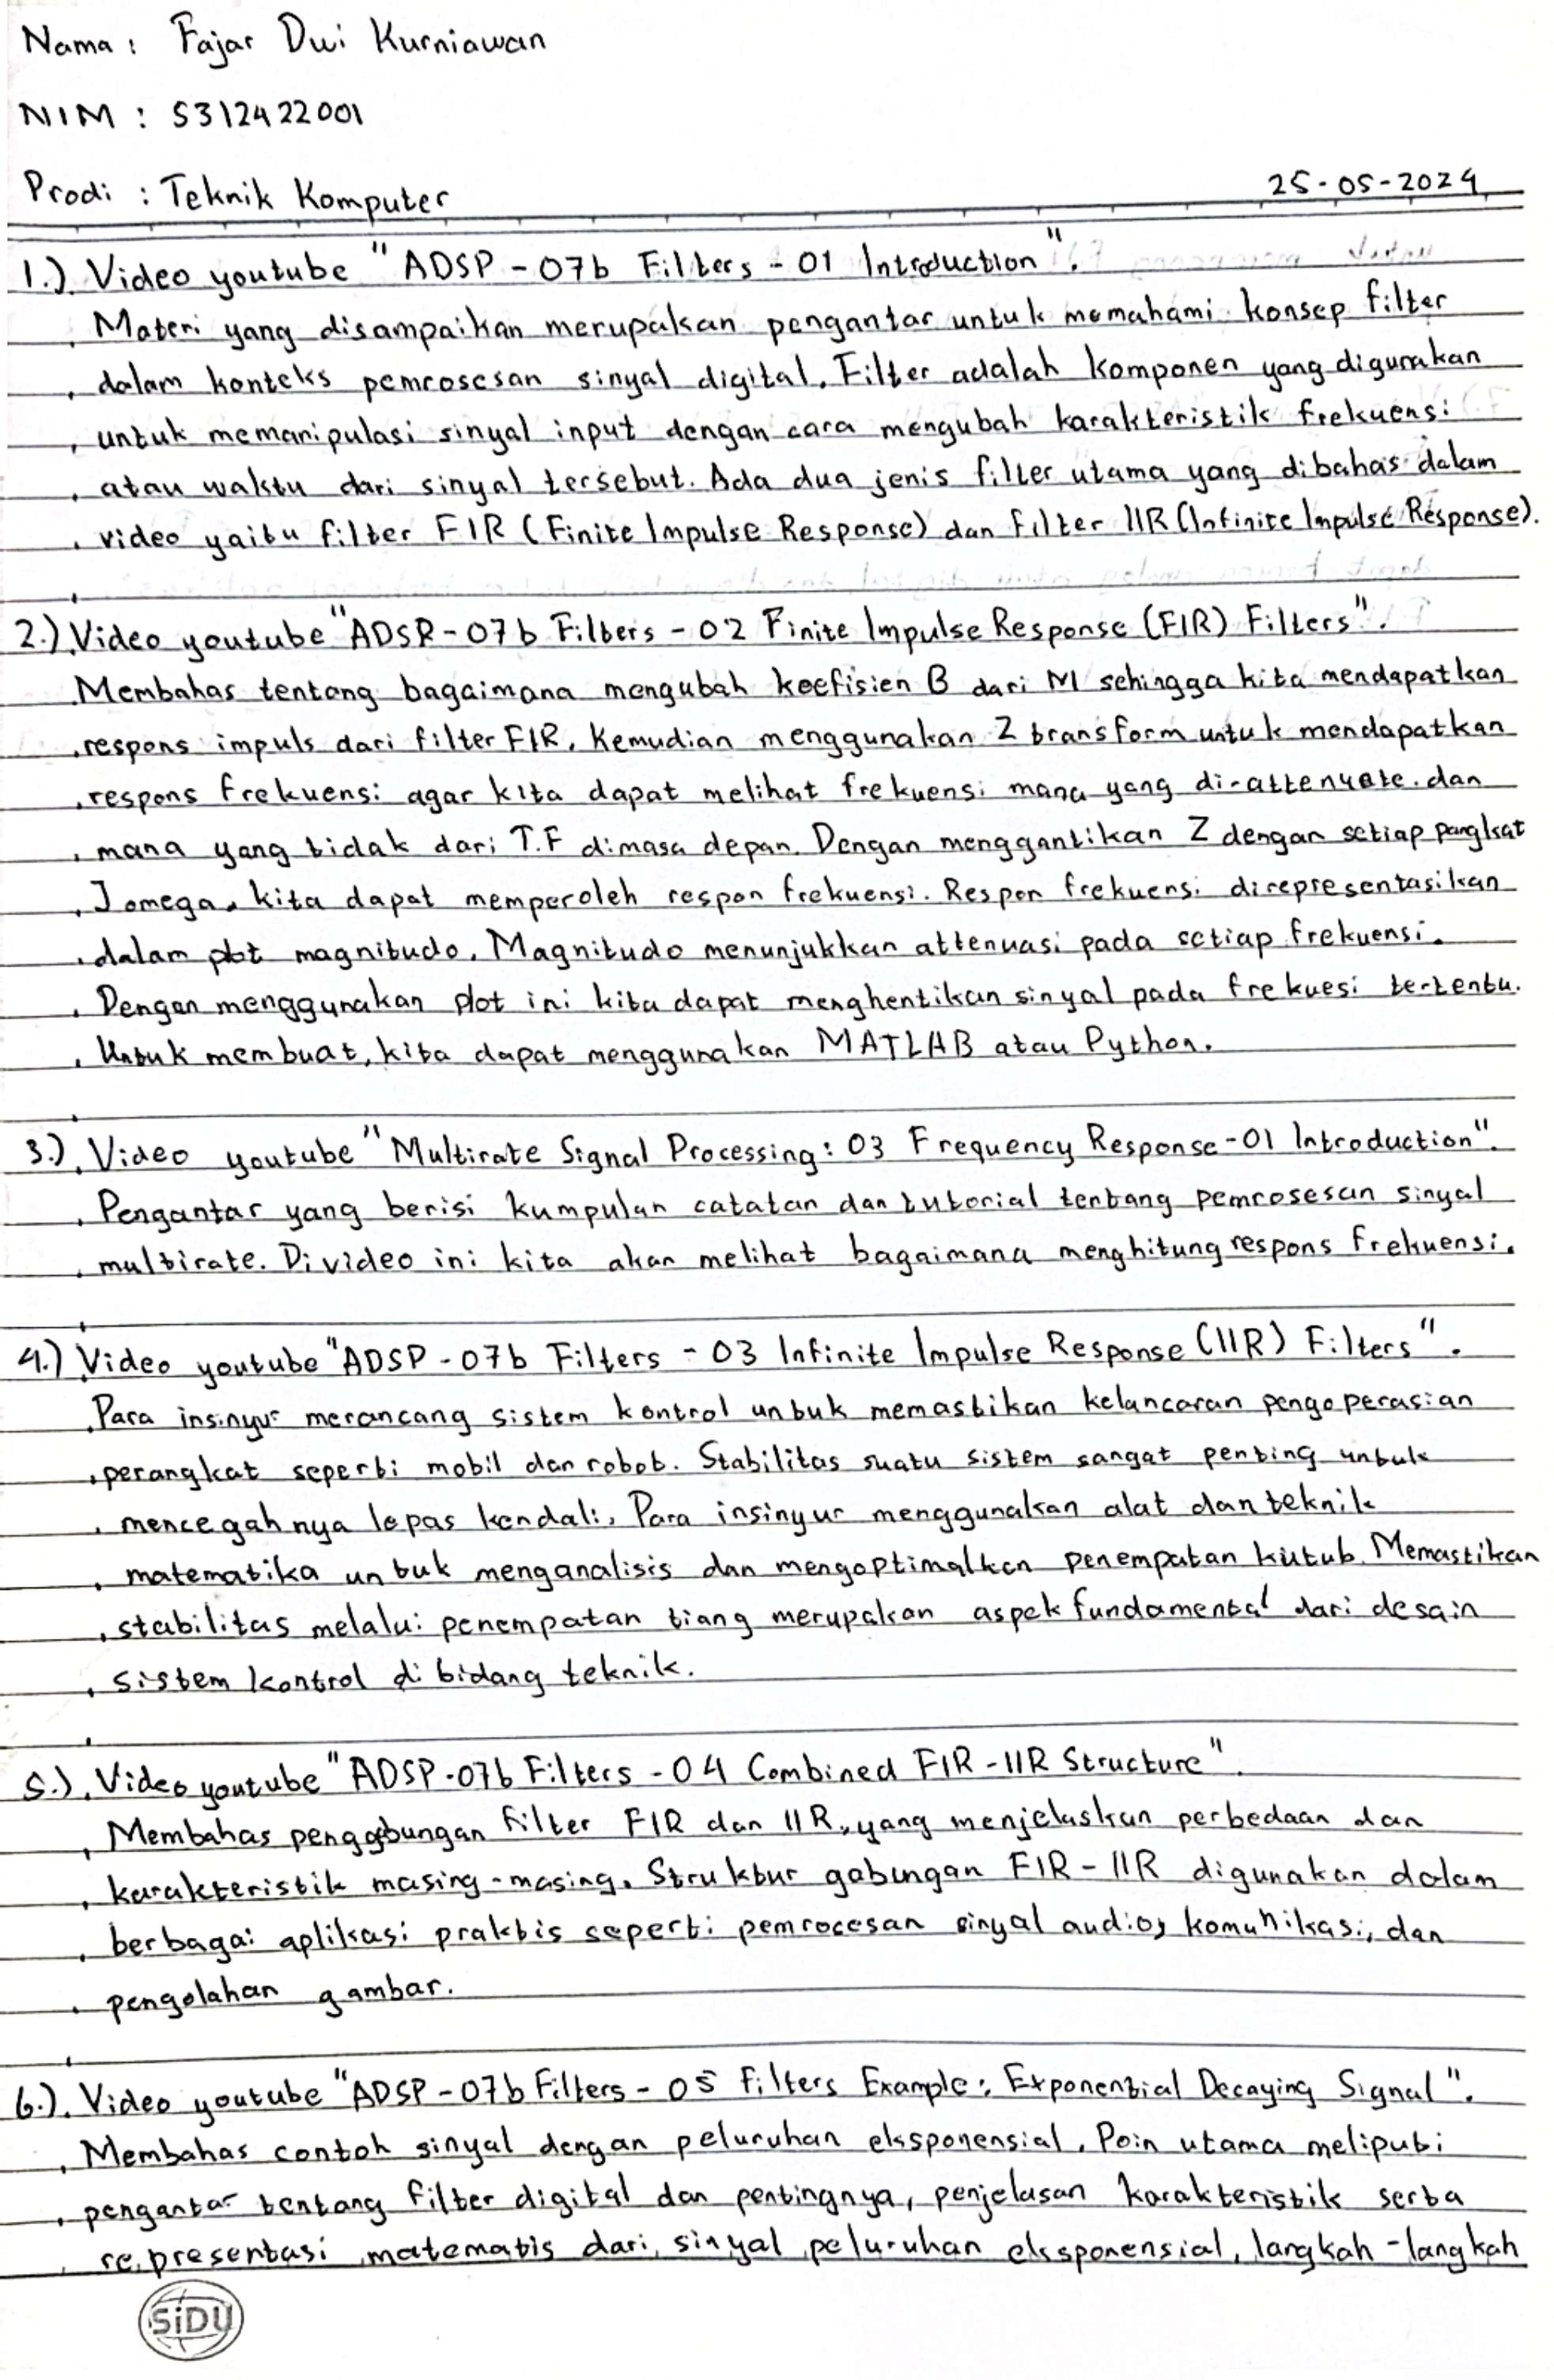 Nama : Fajar Dwi Kurniawan
NIM : 5312422001
Prodi : Teknik Komputer
25-05-2024
1.) Video youtube "ADSP - 07b Filters - 01 Introduction".
Materi yang disampaikan merupakan pengantar untuk memahami konsep filter
dalam konteks pemrosesan sinyal digital. Filter adalah komponen yang digunakan
untuk memanipulasi sinyal input dengan cara mengubah karakteristik frekuensi
atau waktu dari sinyal tersebut. Ada dua jenis filter utama yang dibahas dalam
video yaitu filter FIR (Finite Impulse Response) dan Filter IIR (Infinite Impulse Response).
2.) Video youtube "ADSP - 07b Filters - 02 Finite Impulse Response (FIR) Filters".
Membahas tentang bagaimana mengubah koefisien B dari M sehingga kita mendapatkan
respons impuls dari filter FIR. Kemudian menggunakan Z transform untuk mendapatkan
respons frekuensi agar kita dapat melihat frekuensi mana yang di-attenuate dan
mana yang tidak dari T.F dimasa depan. Dengan menggantikan Z dengan setiap pangkat
Jomega, kita dapat memperoleh respon frekuensi. Respon frekuensi direpresentasikan
dalam plot magnitudo. Magnitudo menunjukkan attenuasi pada setiap frekuensi.
Dengan menggunakan plot ini kita dapat menghentikan sinyal pada frekuesi tertentu.
Untuk membuat, kita dapat menggunakan MATLAB atau Python.
3.) Video youtube "Multirate Signal Processing: 03 Frequency Response - 01 Introduction".
Pengantar yang berisi kumpulan catatan dan tutorial tentang pemrosesan sinyal
multirate. Di video ini kita akan melihat bagaimana menghitung respons frekuensi.
4.) Video youtube "ADSP - 07b Filters - 03 Infinite Impulse Response (IIR) Filters".
Para insinyur merancang sistem kontrol untuk memastikan kelancaran pengoperasian
perangkat seperti mobil dan robot. Stabilitas suatu sistem sangat penting untuk
mencegahnya lepas kendali. Para insinyur menggunakan alat dan teknik
matematika untuk menganalisis dan mengoptimalkan penempatan kutub. Memastikan
stabilitas melalui penempatan tiang merupakan aspek fundamental dari desain
sistem kontrol di bidang teknik.
5.) Video youtube "ADSP-07b Filters - 04 Combined FIR-IIR Structure".
Membahas penggabungan filter FIR dan IIR, yang menjelaskan perbedaan dan
karakteristik masing-masing. Struktur gabungan FIR-IIR digunakan dalam
berbagai aplikasi praktis seperti pemrocesan sinyal audio, komunikasi, dan
pengolahan gambar.
6.) Video youtube "ADSP-07b Filters - 05 Filters Example: Exponential Decaying Signal".
Membahas contoh sinyal dengan peluruhan eksponensial. Poin utama meliputi
pengantar tentang filter digital dan pentingnya, penjelasan karakteristik serta
representasi matematis dari sinyal peluruhan eksponensial, langkah-langkah
SiDU